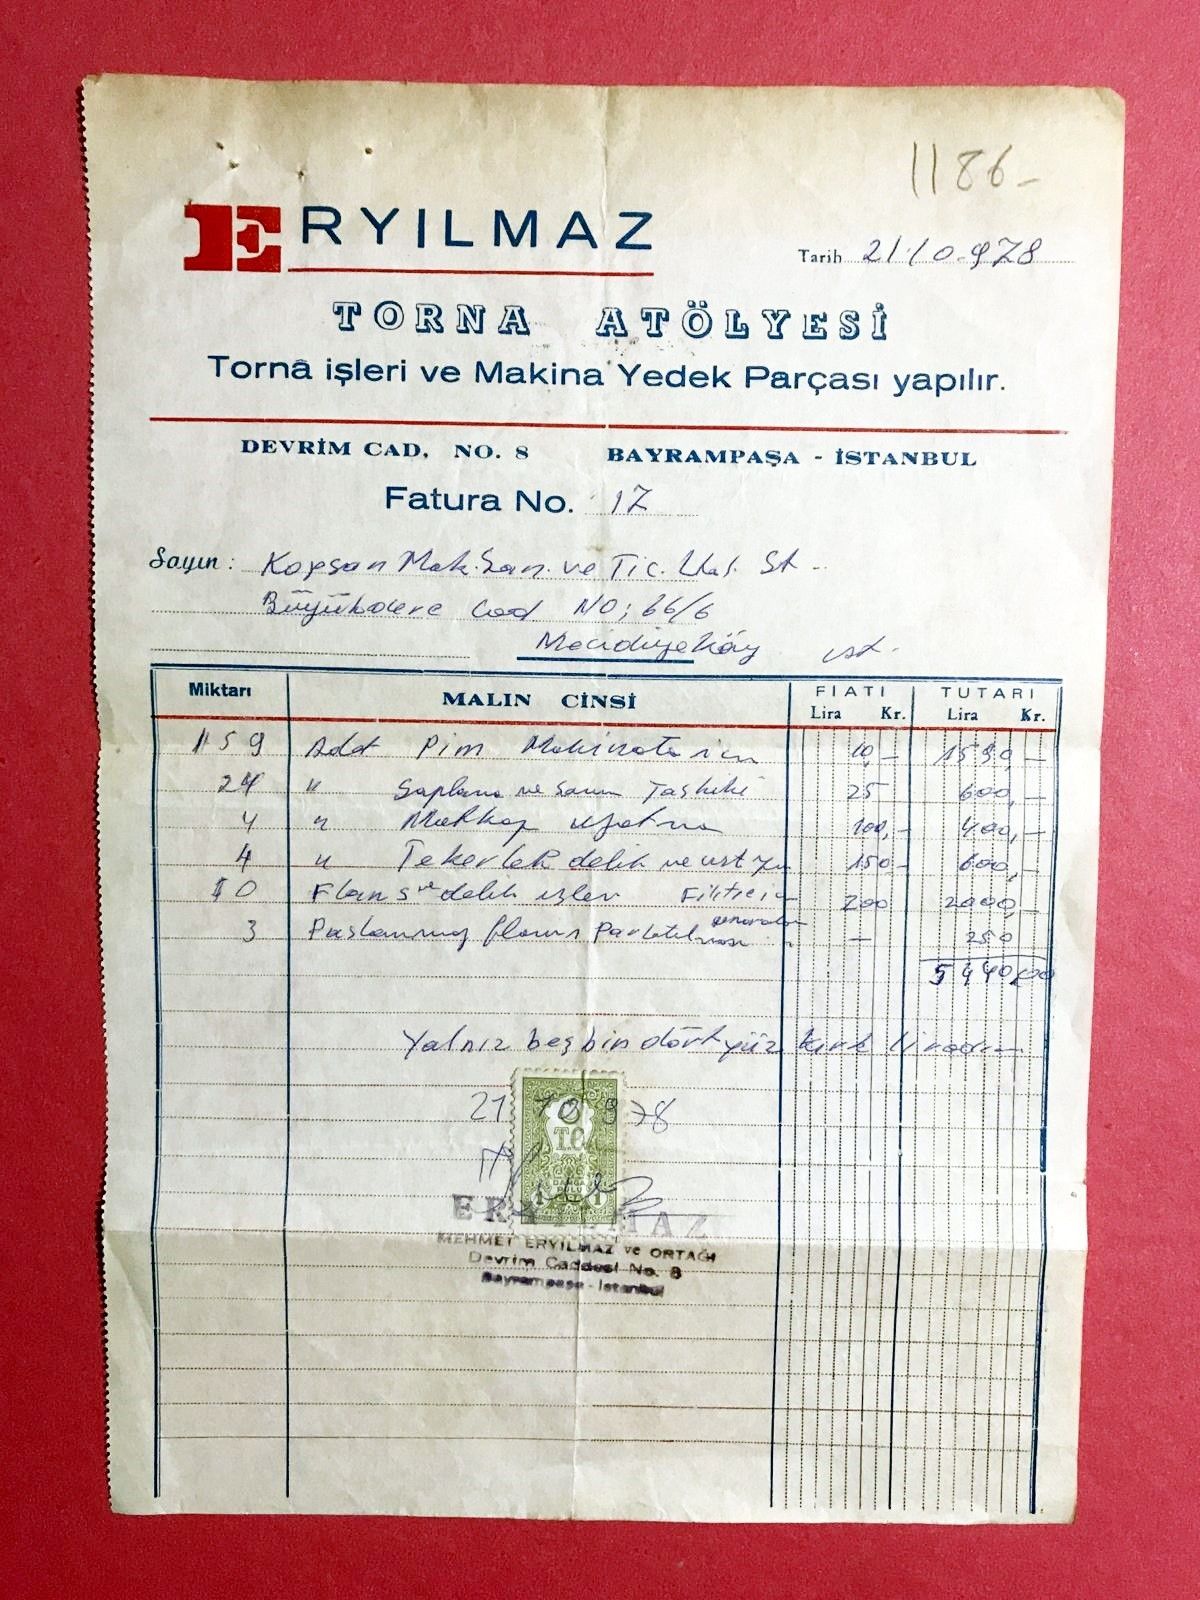 1186-
ERYILMAZ
Tarih 21/10.978
TORNA ATÖLYESİ
Torna işleri ve Makina Yedek Parçası yapılır.
DEVRİM CAD. NO. 8 BAYRAMPAŞA - İSTANBUL
Fatura No. 17
Sayın: Kopsan Mak. San. ve Tic.
Büyükdere Cad NO; 66/6
Mecidiyeköy ist.
Miktarı MALIN CİNSİ FİATI TUTARI
Lira Kr. Lira Kr.
159 Adet Pim 10,- 1590,-
24 " Saplama ve 25 600,-
4 " Matkap 100,- 400,-
4 " Tekerlek delik ve 150- 600,-
10 Flanş ve delik işler 200 2000,-
3 Paslanmış flanş - 250
5440,00
Yalnız beşbin dörtyüz kırk liradır
21 10 978
T.C.
1 1
ERYILMAZ
MEHMET ERYILMAZ ve ORTAĞI
Devrim Caddesi No. 8
Bayrampaşa - İstanbul